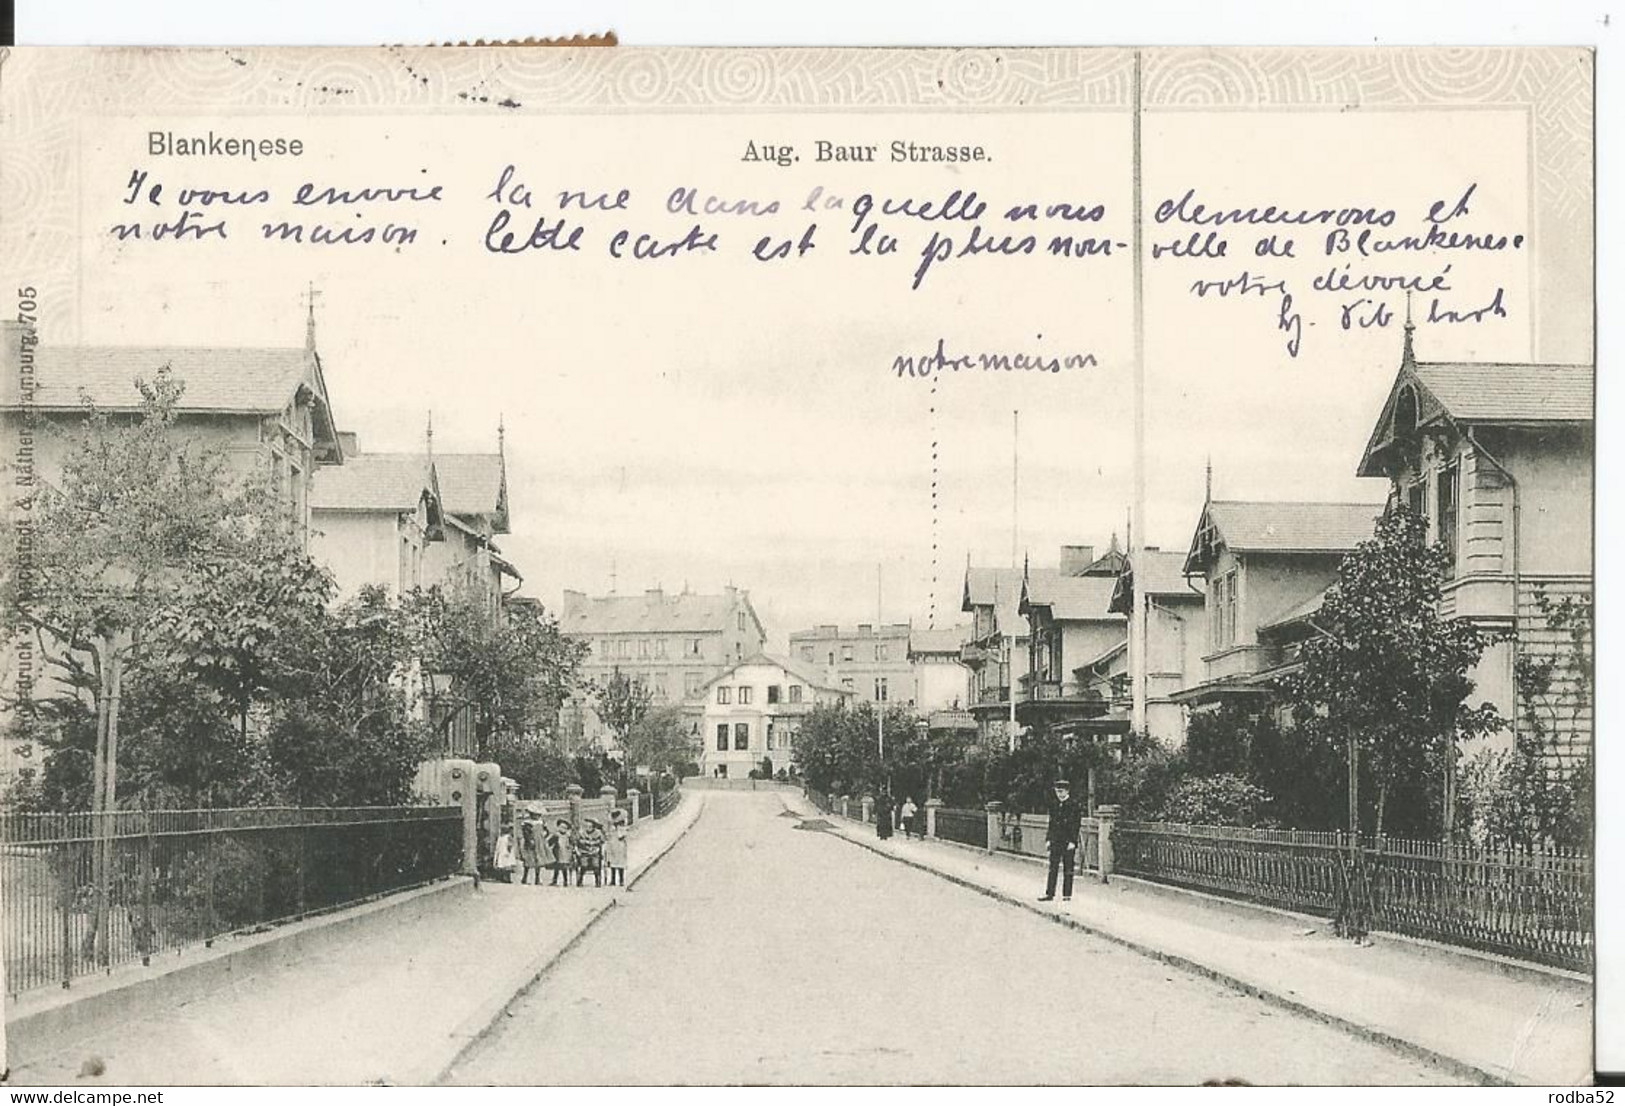 Blankenese
Aug. Baur Strasse.
Je vous envoie la rue dans laquelle nous demeurons et
notre maison. Cette carte est la plus nou-velle de Blankenese
votre dévoué
notre maison
Hamburg, 705
delcampe.net
rodba52